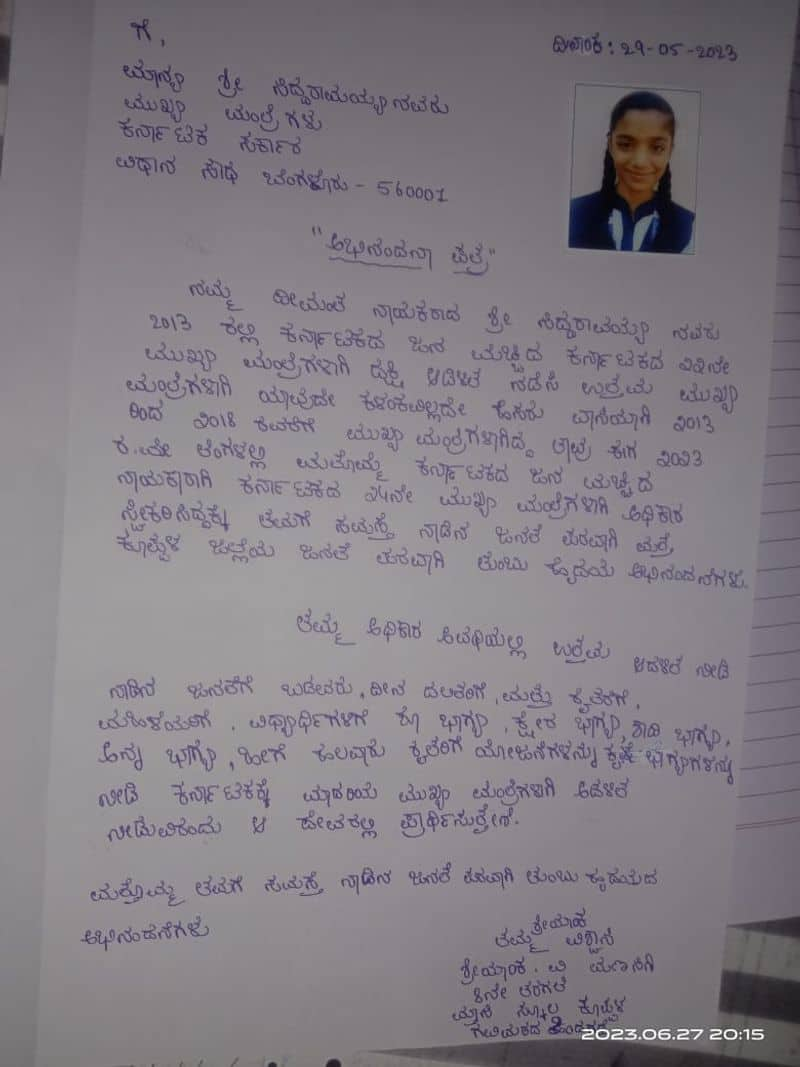 ಗೆ,
ದಿನಾಂಕ: 29-05-2023
ಮಾನ್ಯ ಶ್ರೀ ಸಿದ್ದರಾಮಯ್ಯನವರು
ಮುಖ್ಯ ಮಂತ್ರಿಗಳು
ಕರ್ನಾಟಕ ಸರ್ಕಾರ
ವಿಧಾನ ಸೌಧ ಬೆಂಗಳೂರು - 560001
"ಅಭಿನಂದನಾ ಪತ್ರ"
ನಮ್ಮ ಧೀಮಂತ ನಾಯಕರಾದ ಶ್ರೀ ಸಿದ್ದರಾಮಯ್ಯ ನವರು
2013 ರಲ್ಲಿ ಕರ್ನಾಟಕದ ಜನ ಮೆಚ್ಚಿದ ಕರ್ನಾಟಕದ ೨೨ನೇ
ಮುಖ್ಯ ಮಂತ್ರಿಗಳಾಗಿ ದಕ್ಷ ಆಡಳಿತ ನಡೆಸಿ ಉತ್ತಮ ಮುಖ್ಯ
ಮಂತ್ರಿಗಳಾಗಿ ಯಾವುದೇ ಕಳಂಕವಿಲ್ಲದೇ ಹೆಸರು ವಾಸಿಯಾಗಿ 2013
ರಿಂದ 2018 ರವರೆಗೆ ಮುಖ್ಯ ಮಂತ್ರಿಗಳಾಗಿದ್ದ ತಾವು ಈಗ 2023
ರ ಮೇ ತಿಂಗಳಲ್ಲಿ ಮತ್ತೊಮ್ಮೆ ಕರ್ನಾಟಕದ ಜನ ಮೆಚ್ಚಿದ
ನಾಯಕರಾಗಿ ಕರ್ನಾಟಕದ ೨೪ನೇ ಮುಖ್ಯ ಮಂತ್ರಿಗಳಾಗಿ ಅಧಿಕಾರ
ಸ್ವೀಕರಿಸಿದ್ದಕ್ಕೆ ತಮಗೆ ಸಮಸ್ತ ನಾಡಿನ ಜನತೆ ಪರವಾಗಿ ಮತ್ತು
ಕೊಪ್ಪಳ ಜಿಲ್ಲೆಯ ಜನತೆ ಪರವಾಗಿ ತುಂಬು ಹೃದಯ ಅಭಿನಂದನೆಗಳು.
ತಮ್ಮ ಅಧಿಕಾರ ಅವಧಿಯಲ್ಲಿ ಉತ್ತಮ ಆಡಳಿತ ನೀಡಿ
ನಾಡಿನ ಜನತೆಗೆ ಬಡವರು, ದೀನ ದಲಿತರಿಗೆ, ಮತ್ತು ರೈತರಿಗೆ,
ಮಹಿಳೆಯರಿಗೆ, ವಿಧ್ಯಾರ್ಥಿಗಳಿಗೆ ಶೂ ಭಾಗ್ಯ, ಕ್ಷೀರ ಭಾಗ್ಯ, ಶಾದಿ ಭಾಗ್ಯ,
ಅನ್ನ ಭಾಗ್ಯ, ಹೀಗೆ ಹಲವಾರು ರೈತರಿಗೆ ಯೋಜನೆಗಳನ್ನು ಕೃಷಿ ಭಾಗ್ಯಗಳನ್ನು
ನೀಡಿ ಕರ್ನಾಟಕಕ್ಕೆ ಮಾದರಿಯ ಮುಖ್ಯ ಮಂತ್ರಿಗಳಾಗಿ ಆಡಳಿತ
ನೀಡುವಿರೆಂದು ಆ ದೇವರಲ್ಲಿ ಪ್ರಾರ್ಥಿಸುತ್ತೇನೆ.
ಮತ್ತೊಮ್ಮೆ ತಮಗೆ ಸಮಸ್ತ ನಾಡಿನ ಜನತೆ ಪರವಾಗಿ ತುಂಬು ಹೃದಯದ
ಅಭಿನಂದನೆಗಳು
ಶ್ರೇಯಾಂಕ
ತಮ್ಮ ವಿಶ್ವಾಸಿ
ಶ್ರೇಯಾಂಕ. ವಿ
8ನೇ ತರಗತಿ
ಸ್ಕೂಲ ಕೊಪ್ಪಳ
ಗವಿಮಠದ
2023.06.27 20:15